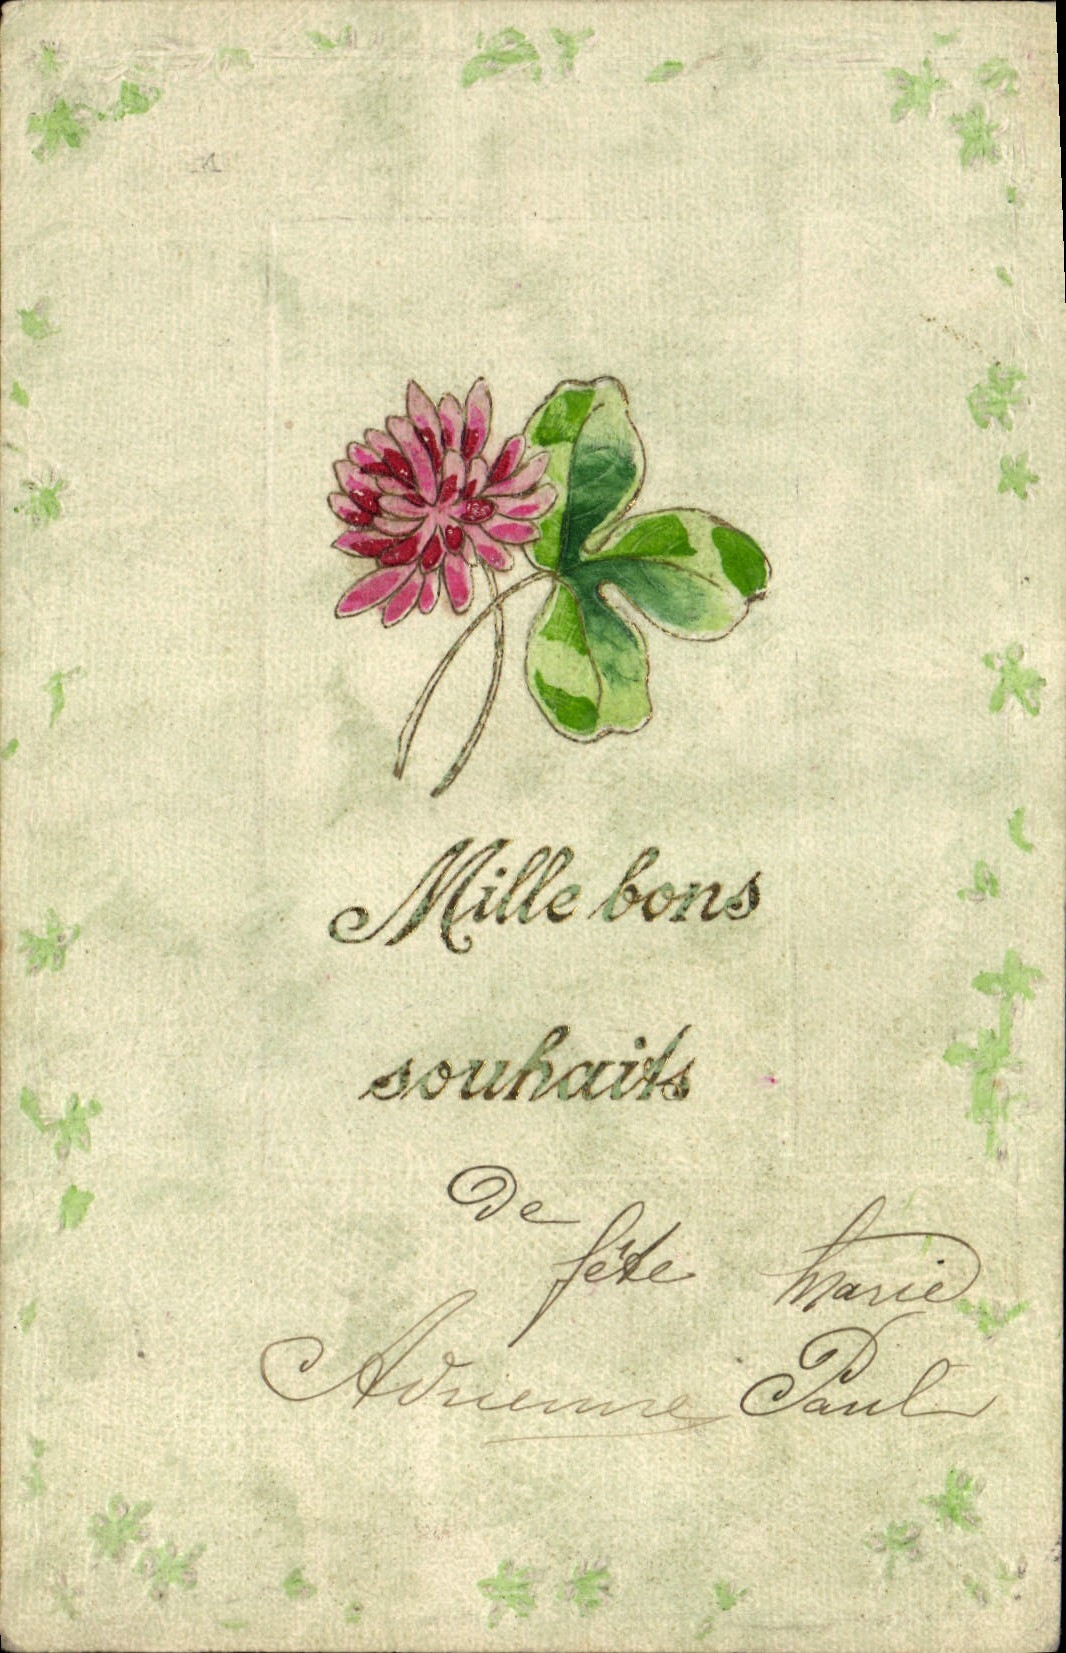 Mille bons
souhaits
De
fête Marie
Adrienne Paul